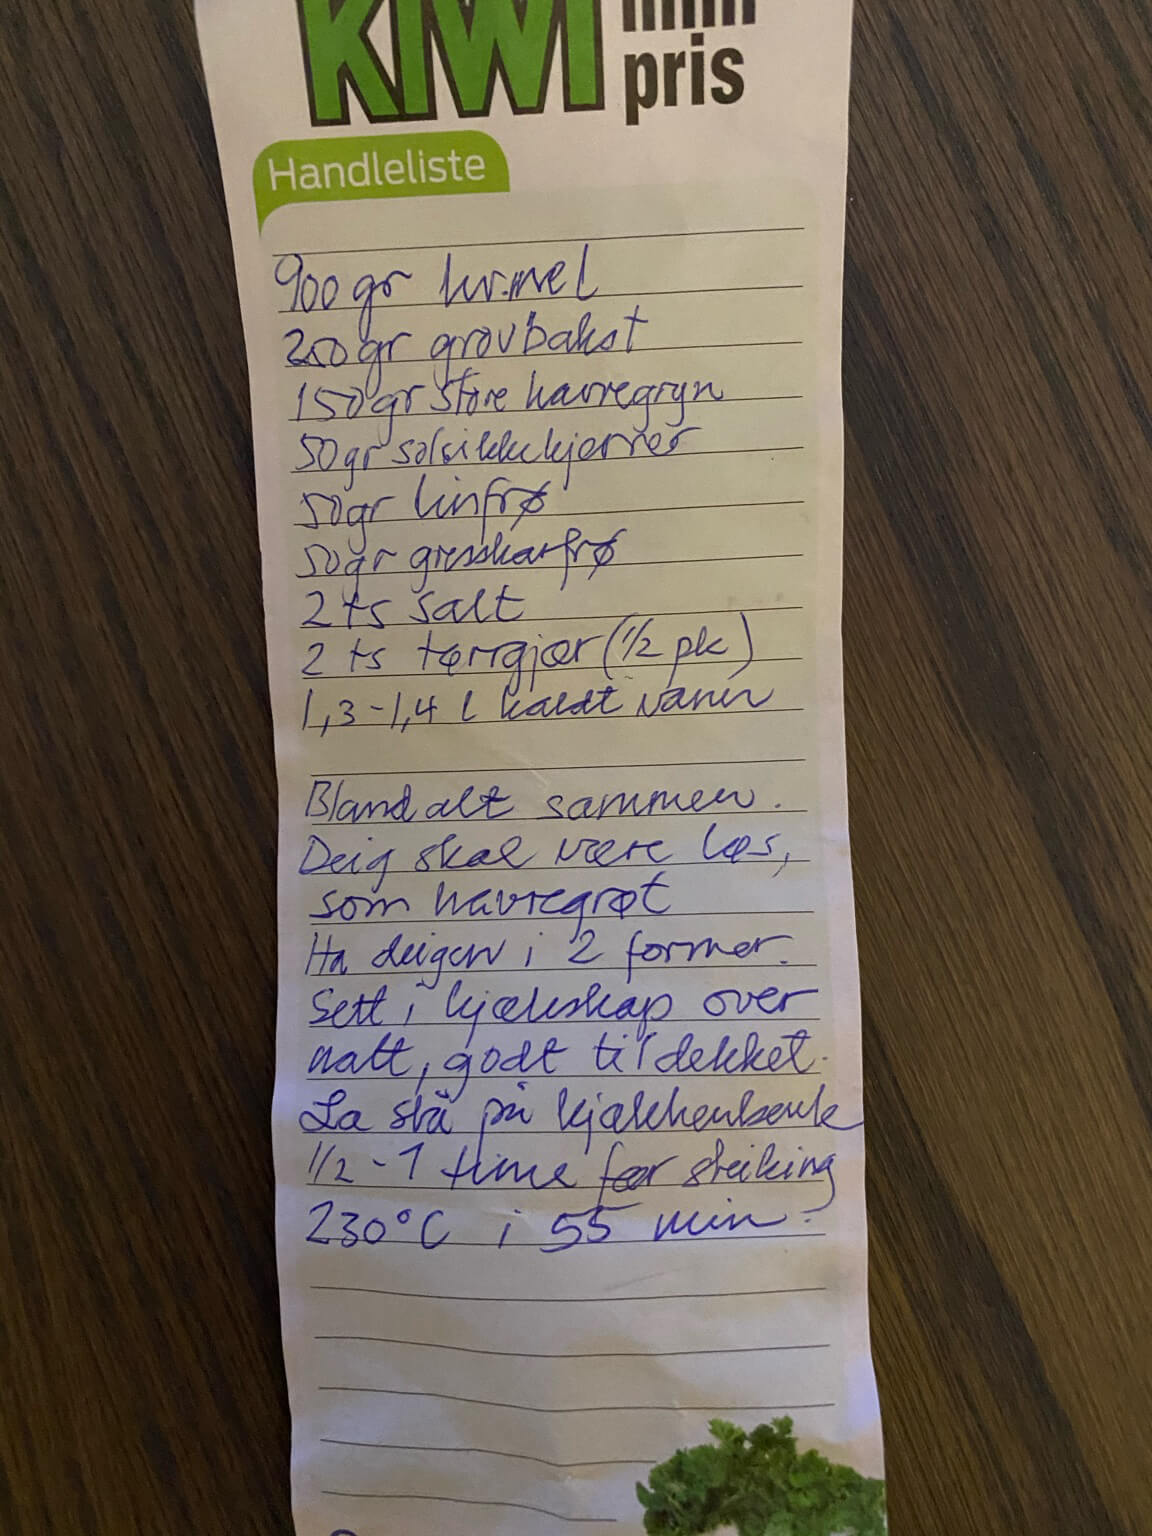 KIWI mini
pris
Handleliste
900 gr hv.mel
200gr grovbakst
150gr store havregryn
50gr solsikkekjerner
50gr linfrø
50gr gresskarfrø
2 ts salt
2 ts tørrgjær (1/2 pk)
1,3-1,4 l kaldt vann
Bland alt sammen.
Deig skal være løs,
som havregrøt
Ha deigen i 2 former.
Sett i kjøleskap over
natt, godt tildekket.
La stå på kjøkkenbenk
1/2 - 1 time før steiking
230°C i 55 min.